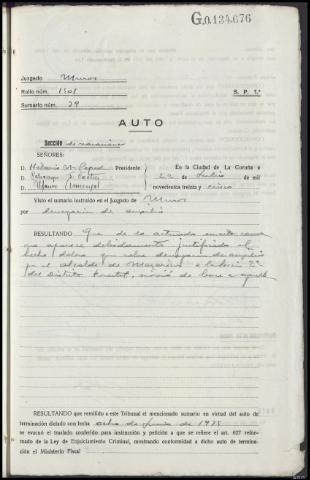 G.0.134.676
Juzgado Muros
Rollo núm. 1501 S. P. 1.ª
Sumario núm. 29
AUTO
Sección de vacaciones
SEÑORES:
D. Presidente En la Ciudad de La Coruña a
D. 22 de Julio de mil
D. novecientos treinta y cinco
Visto el sumario instruído en el Juzgado de Muros
por denegación de auxilio
RESULTANDO Que de lo actuado en esta causa
no aparece debidamente justificado el
hecho que sobre denegación de auxilio
por el alcalde de Mazaricos
del Distrito forestal, de base a aquella
RESULTANDO que remitido a este Tribunal el mencionado sumario en virtud del auto de
terminación dictado con fecha ocho de Junio de 1935
se evacuó el traslado conferido para instrucción y petición a que se refiere el art. 627 refor-
mado de la Ley de Enjuiciamiento Criminal, mostrando conformidad a dicho auto de termina-
ción el Ministerio Fiscal